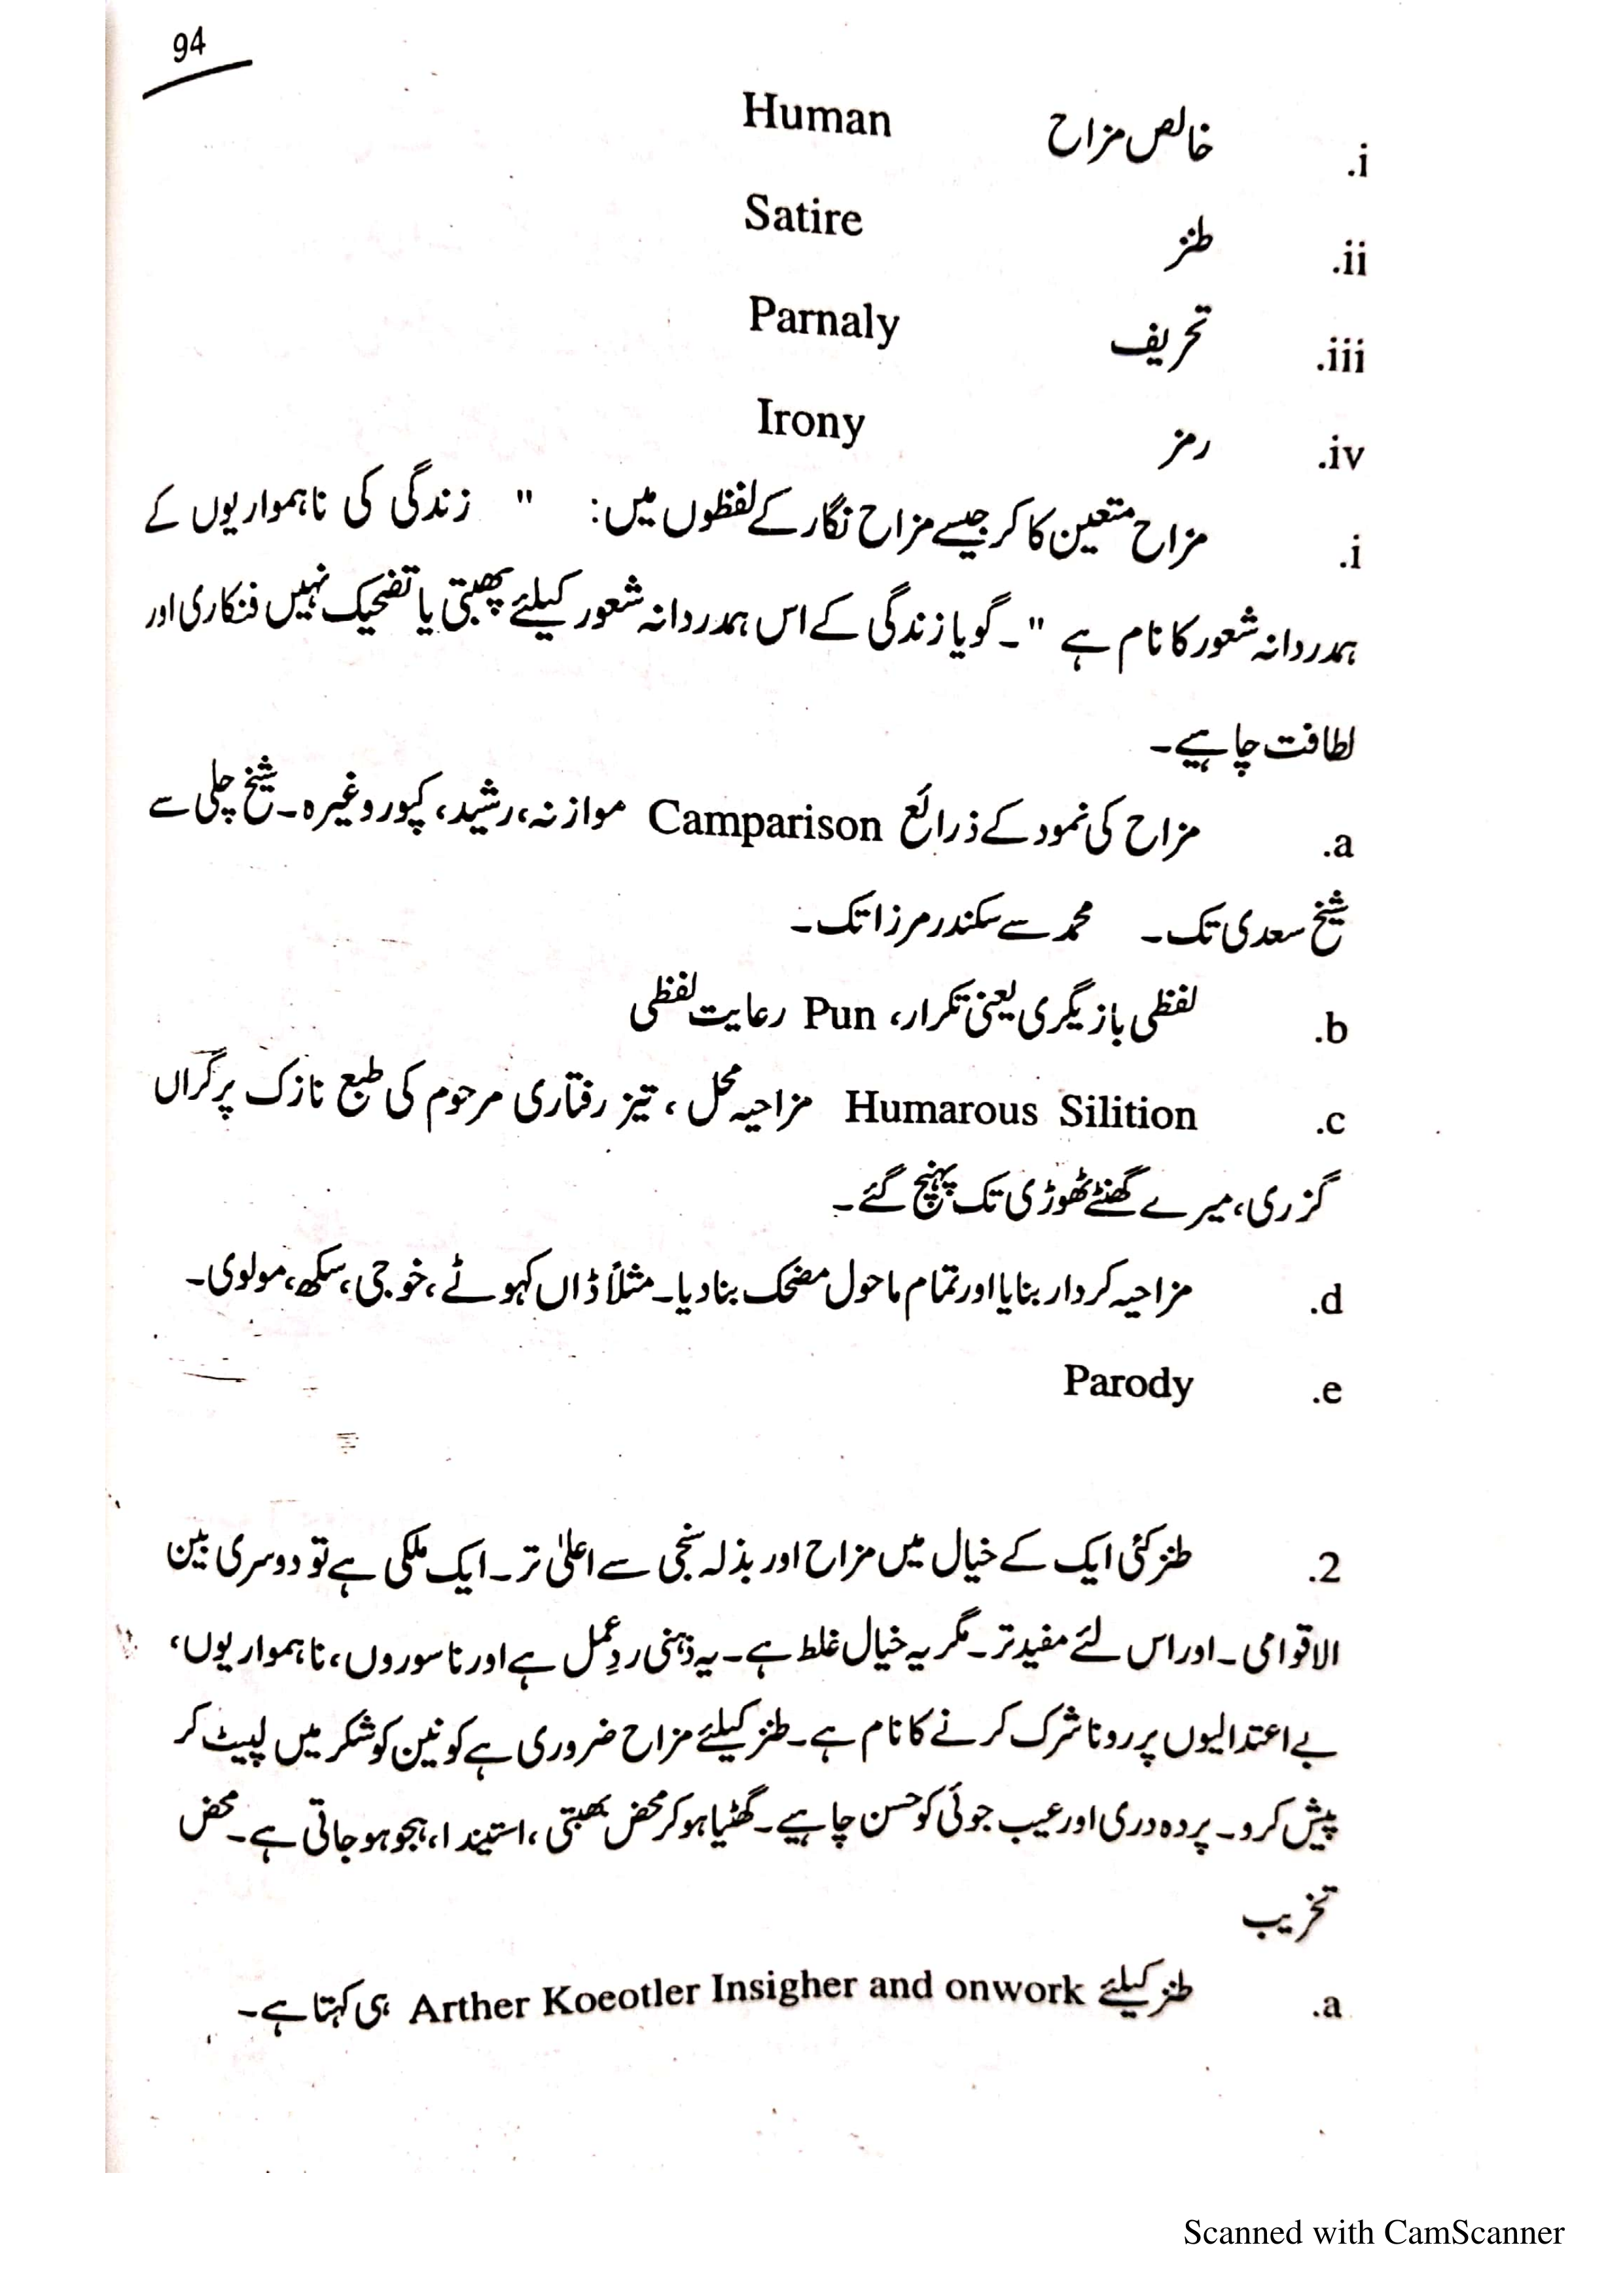 94
i. خالص مزاح Human
ii. طنز Satire
iii. تحریف Parnaly
iv. رمز Irony
i. مزاح متعین کا کر جیسے مزاح نگار کے لفظوں میں: " زندگی کی ناہمواریوں کے
ہمدردانہ شعور کا نام ہے "۔ گویا زندگی کے اس ہمدردانہ شعور کیلئے پھبتی یا تضحیک نہیں فنکاری اور
لطافت چاہیے۔
a. مزاح کی نمود کے ذرائع Camparison موازنہ، رشید، کپور وغیرہ۔ شیخ چلی سے
شیخ سعدی تک۔ محمد سے سکندر مرزا تک۔
b. لفظی بازیگری یعنی تکرار، Pun رعایت لفظی
c. Humarous Silition مزاحیہ محل، تیز رفتاری مرحوم کی طبع نازک پر گراں
گزری، میرے گھٹنے ٹھوڑی تک پہنچ گئے۔
d. مزاحیہ کردار بنایا اور تمام ماحول مضحک بنا دیا۔ مثلاً ڈاں کہوٹے، خوجی، سکھ، مولوی۔
e. Parody
2. طنز کئی ایک کے خیال میں مزاح اور بذلہ سنجی سے اعلیٰ تر۔ ایک ملکی ہے تو دوسری بین
الاقوامی۔ اور اس لئے مفید تر۔ مگر یہ خیال غلط ہے۔ یہ ذہنی ردِعمل ہے اور ناسوروں، ناہمواریوں،
بے اعتدالیوں پر رونا شرک کرنے کا نام ہے۔ طنز کیلئے مزاح ضروری ہے کونین کو شکر میں لپیٹ کر
پیش کرو۔ پردہ دری اور عیب جوئی کو حسن چاہیے۔ گھٹیا ہو کر محض پھبتی، استیندا، ہجو ہو جاتی ہے۔ محض
تخریب
a. طنز کیلئے Arther Koeotler Insigher and onwork ہی کہتا ہے۔
Scanned with CamScanner